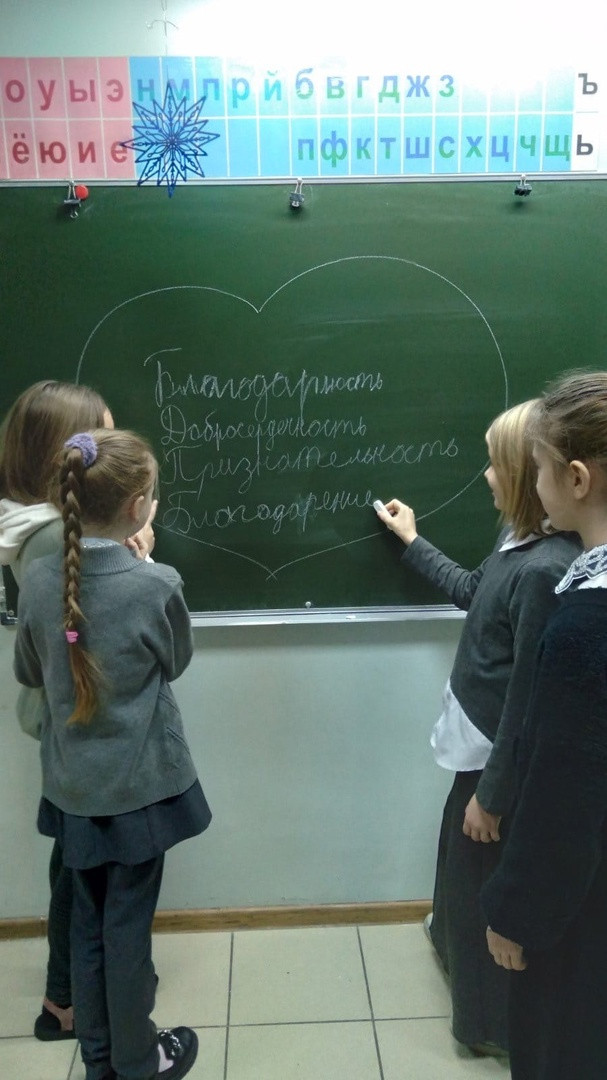 о у ы э н м п р й б в г д ж з ъ
ё ю и е п ф к т ш с х ц ч щ ь
Благодарность
Добросердечность
Признательность
Благодарение